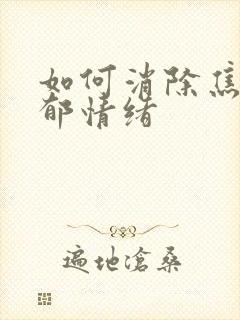 如何消除焦
郁情绪
遍地滄桑